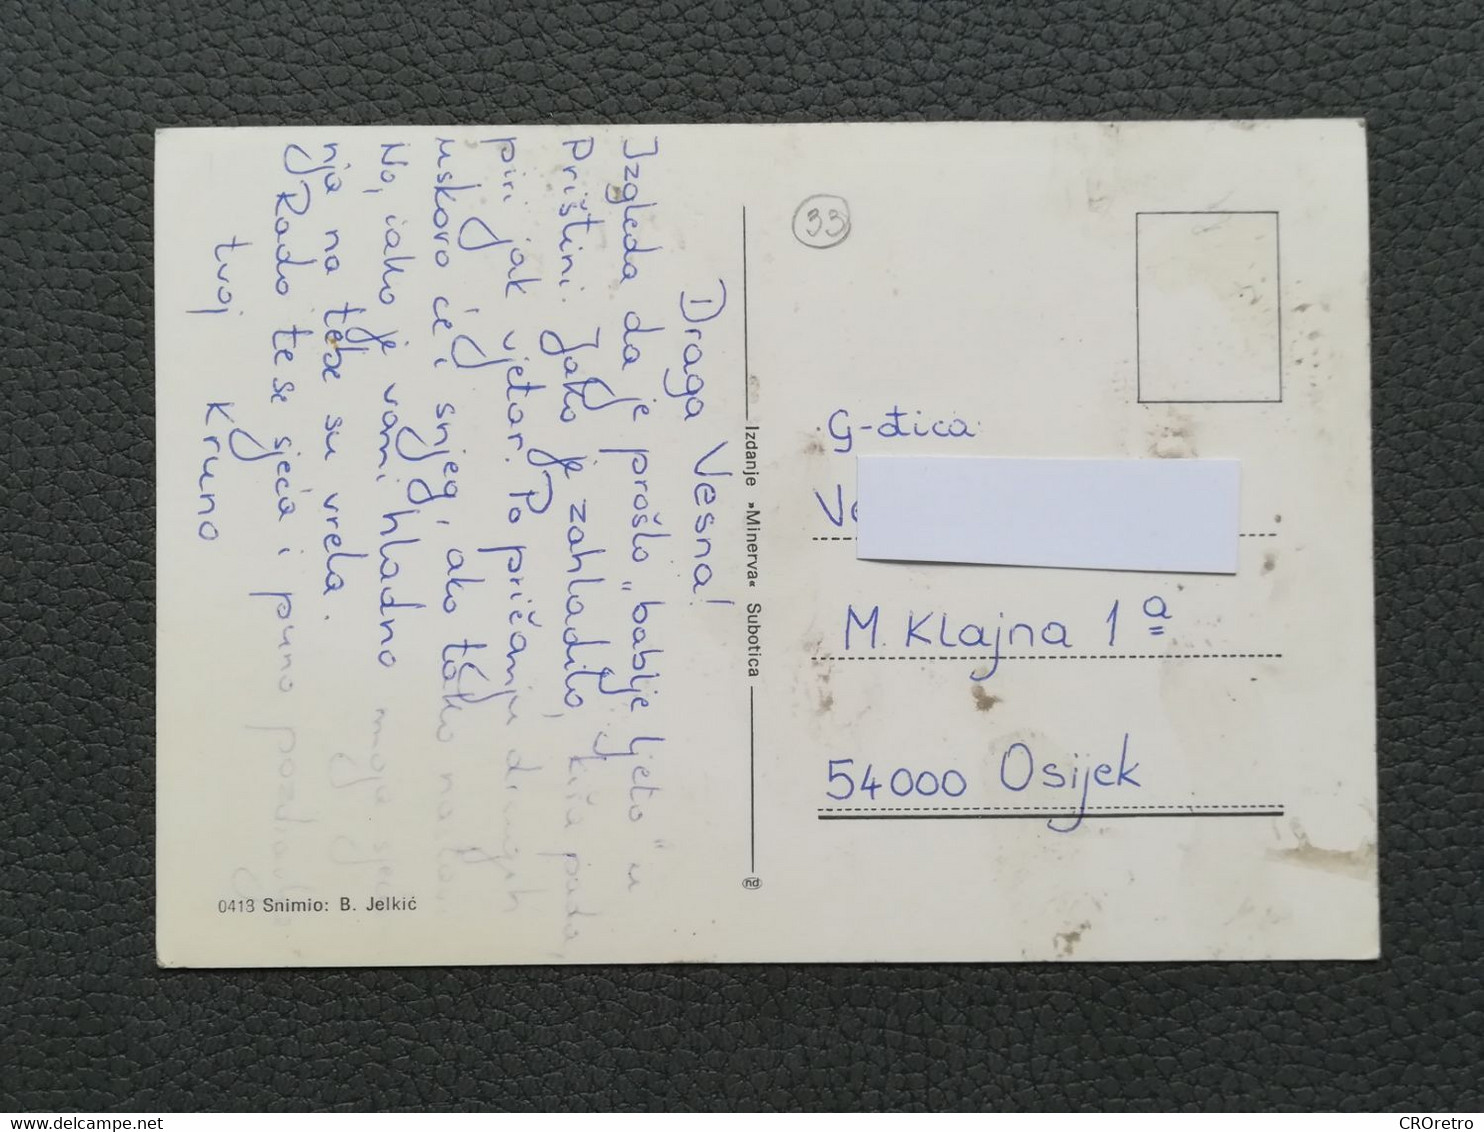 Draga Vesna!
Izgleda da je prošlo „bablje ljeto" u
Prištini. Jako je zahladilo, kiša pada,
piri jak vjetar. Po pričanju drugih
uskoro će i snijeg, ako tako nastavi.
No, iako je vani hladno moja sjeća
nja na tebe su vrela.
Rado te se sjeća i puno pozdravlja
tvoj Kruno
0418 Snimio: B. Jelkić
Izdanje »Minerva« Subotica
33
G-đica
Ve
M. Klajna 1a
54000 Osijek
CROretro
delcampe.net